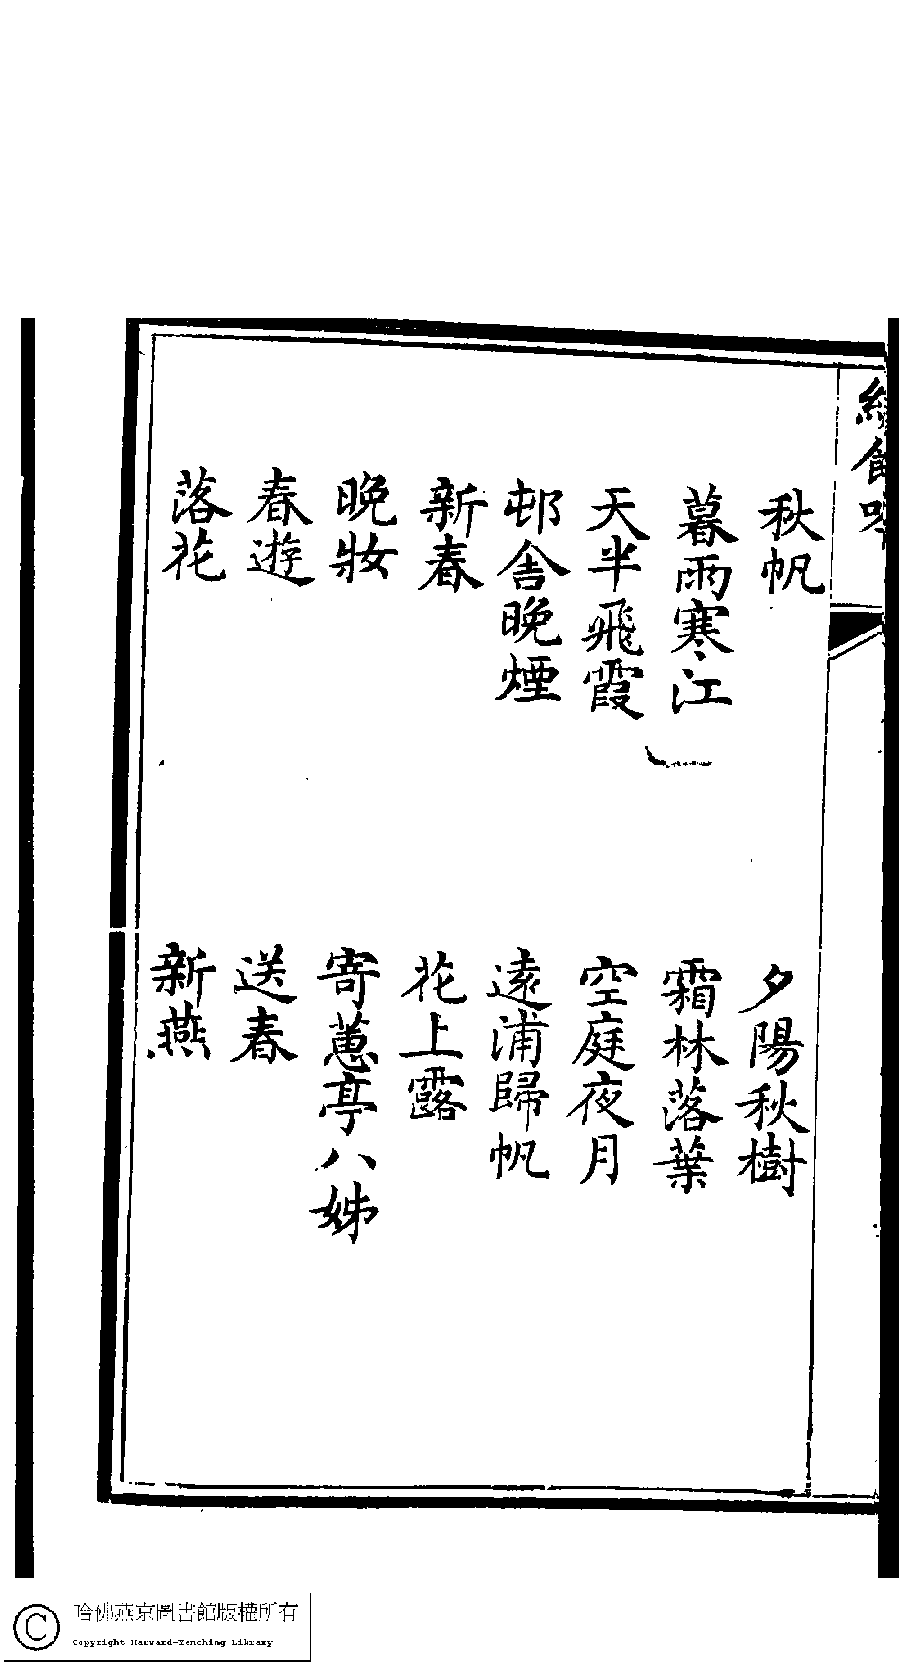 秋帆　夕陽秋樹
暮雨寒江　霜林落葉
天半飛霞　空庭夜月
邨舍晚煙　遠浦歸帆
新春　花上露
晚妝　寄蕙亭八姊
春遊　送春
落花　新燕
哈佛燕京圖書館版權所有
Copyright Harvard-Yenching Library